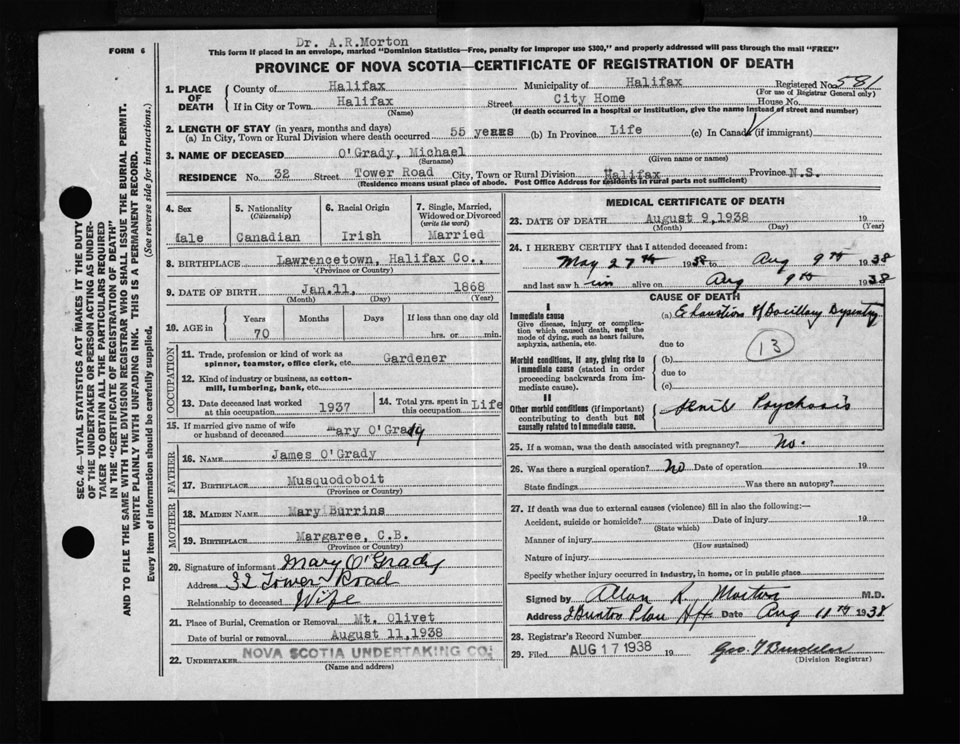 FORM 6
Dr. A.R.Morton
This form if placed in an envelope, marked "Dominion Statistics—Free, penalty for improper use $300," and properly addressed will pass through the mail "FREE"
PROVINCE OF NOVA SCOTIA—CERTIFICATE OF REGISTRATION OF DEATH
SEC. 46—VITAL STATISTICS ACT MAKES IT THE DUTY
OF THE UNDERTAKER OR PERSON ACTING AS UNDER-
TAKER TO OBTAIN ALL THE PARTICULARS REQUIRED
IN THE "CERTIFICATE OF REGISTRATION OF DEATH"
AND TO FILE THE SAME WITH THE DIVISION REGISTRAR WHO SHALL ISSUE THE BURIAL PERMIT.
WRITE PLAINLY WITH UNFADING INK. THIS IS A PERMANENT RECORD.
Every item of information should be carefully supplied. (See reverse side for instructions.)
1. PLACE OF DEATH
County of Halifax Municipality of Halifax Registered No. 581
(For use of Registrar General only)
If in City or Town Halifax Street City Home House No.
(Name) (If death occurred in a hospital or institution, give the name instead of street and number)
2. LENGTH OF STAY (in years, months and days)
(a) In City, Town or Rural Division where death occurred 55 years (b) In Province Life (c) In Canada (if immigrant)
3. NAME OF DECEASED O'Grady, Michael
(Surname) (Given name or names)
RESIDENCE No. 32 Street Tower Road City, Town or Rural Division Halifax Province N.S.
(Residence means usual place of abode. Post Office Address for residents in rural parts not sufficient)
4. Sex 5. Nationality (Citizenship) 6. Racial Origin 7. Single, Married, Widowed or Divorced (write the word)
Male Canadian Irish Married
8. BIRTHPLACE Lawrencetown, Halifax Co.,
(Province or Country)
9. DATE OF BIRTH Jan.11, 1868
(Month) (Day) (Year)
10. AGE in Years Months Days If less than one day old
70 hrs. or min.
OCCUPATION
11. Trade, profession or kind of work as spinner, teamster, office clerk, etc. Gardener
12. Kind of industry or business, as cotton-mill, lumbering, bank, etc.
13. Date deceased last worked at this occupation 1937 14. Total yrs. spent in this occupation Life
15. If married give name of wife or husband of deceased Mary O'Grady
FATHER
16. NAME James O'Grady
17. BIRTHPLACE Musquodoboit
(Province or Country)
MOTHER
18. MAIDEN NAME Mary Burrins
19. BIRTHPLACE Margaree, C.B.
(Province or Country)
20. Signature of informant Mary O'Grady
Address 32 Tower Road
Relationship to deceased Wife
21. Place of Burial, Cremation or Removal Mt. Olivet
Date of burial or removal August 11,1938
22. UNDERTAKER NOVA SCOTIA UNDERTAKING CO.
(Name and address)
MEDICAL CERTIFICATE OF DEATH
23. DATE OF DEATH August 9,1938 19
(Month) (Day) (Year)
24. I HEREBY CERTIFY that I attended deceased from:
May 27th 1938 to Aug 9th 1938
and last saw him alive on Aug 9th 1938
CAUSE OF DEATH
I
Immediate cause
Give disease, injury or complication which caused death, not the mode of dying, such as heart failure, asphyxia, asthenia, etc.
(a) Exhaustion of Bacillary Dysentry
due to
13
Morbid conditions, if any, giving rise to immediate cause (stated in order proceeding backwards from immediate cause).
(b)
due to
(c)
II
Other morbid conditions (if important) contributing to death but not causally related to immediate cause.
Senile Psychosis
25. If a woman, was the death associated with pregnancy? No.
26. Was there a surgical operation? No Date of operation 19
State findings Was there an autopsy?
27. If death was due to external causes (violence) fill in also the following:—
Accident, suicide or homicide? Date of injury 19
(State which)
Manner of injury
(How sustained)
Nature of injury
Specify whether injury occurred in industry, in home, or in public place
Signed by Allan R. Morton M.D.
Address Date Aug 11th 1938
28. Registrar's Record Number
29. Filed AUG 17 1938 19 Geo.
(Division Registrar)